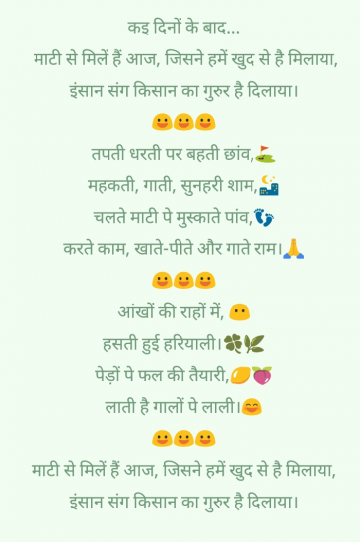 कइ दिनों के बाद...
माटी से मिलें हैं आज, जिसने हमें खुद से है मिलाया,
इंसान संग किसान का गुरुर है दिलाया।
😃😃😃
तपती धरती पर बहती छांव,⛳
महकती, गाती, सुनहरी शाम,🌃
चलते माटी पे मुस्काते पांव,👣
करते काम, खाते-पीते और गाते राम।🙏
😃😃😃
आंखों की राहों में, 😶
हसती हुई हरियाली।🍀🌿
पेड़ों पे फल की तैयारी,🍋🍑
लाती है गालों पे लाली।😄
😃😃😃
माटी से मिलें हैं आज, जिसने हमें खुद से है मिलाया,
इंसान संग किसान का गुरुर है दिलाया।